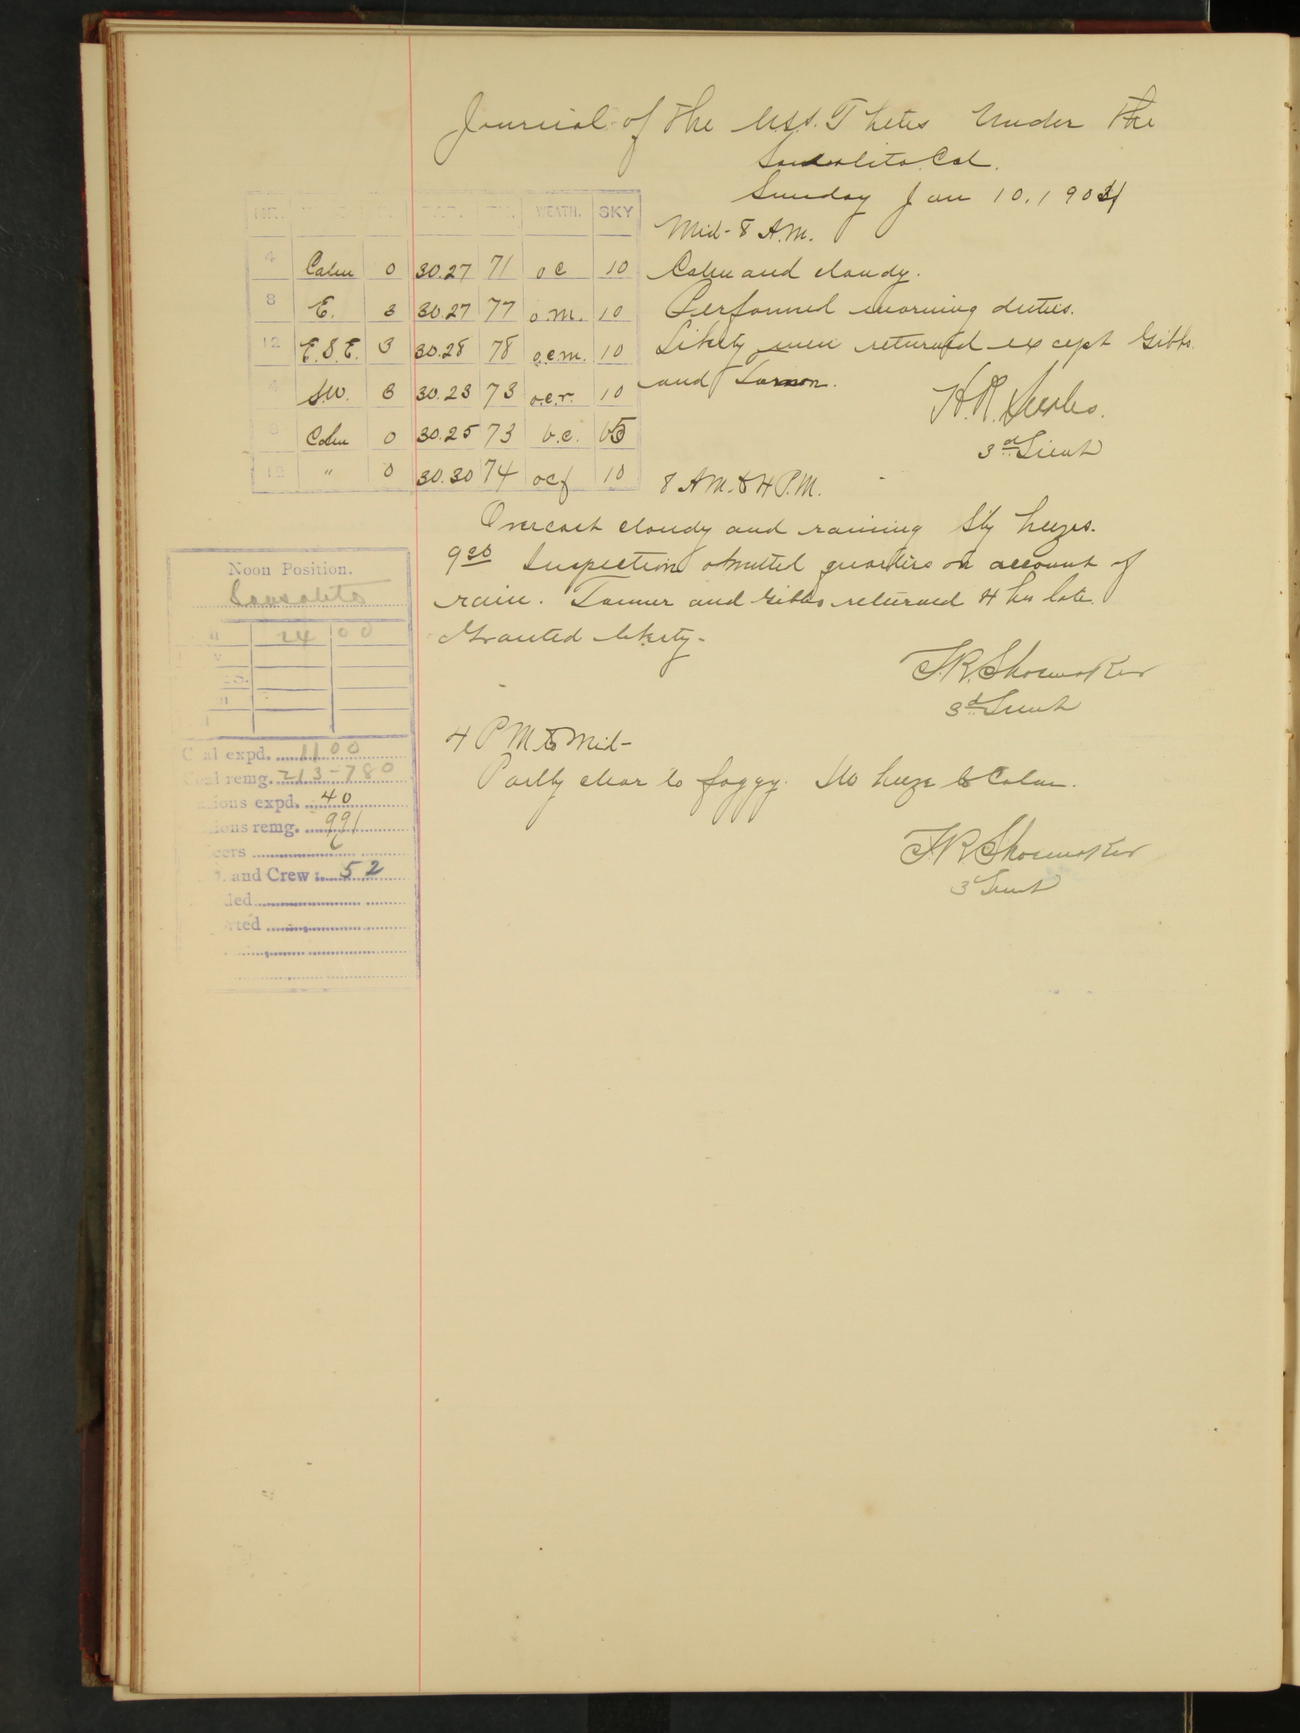 Journal of the U.S.S. Thetis Under the
Sausalito Cal.
Sunday Jan 10, 1904
HR. WEATH. SKY
4 Calm 0 30.27 71 o c 10
8 E. 3 30.27 77 o.m. 10
12 E.S.E. 3 30.28 78 o.c.m. 10
4 S.W. 3 30.23 73 o.c.r. 10
8 Calm 0 30.25 73 b.c. 5
12 " 0 30.30 74 ocf 10
Mid - 8 A.M.
Calm and cloudy.
Performed morning duties.
Liberty men returned except Gibbs
and
H.R.
3d Lieut
8 AM. to 4 P.M.
Overcast cloudy and raining S'ly breezes.
9 Inspection omitted quarters on account of
rain. Tanner and Gibbs returned 4 hrs late.
Granted liberty-
F.R. Shoemaker
3d Lieut
4 PM to Mid-
Partly clear to foggy. breeze to Calm.
F.R. Shoemaker
3 Lieut
Noon Position.
Sausalito
24 00
Coal expd. 1100
Coal remg. 213-780
ions expd. 40
ions remg. 991
cers 6
and Crew 52
ded
rted